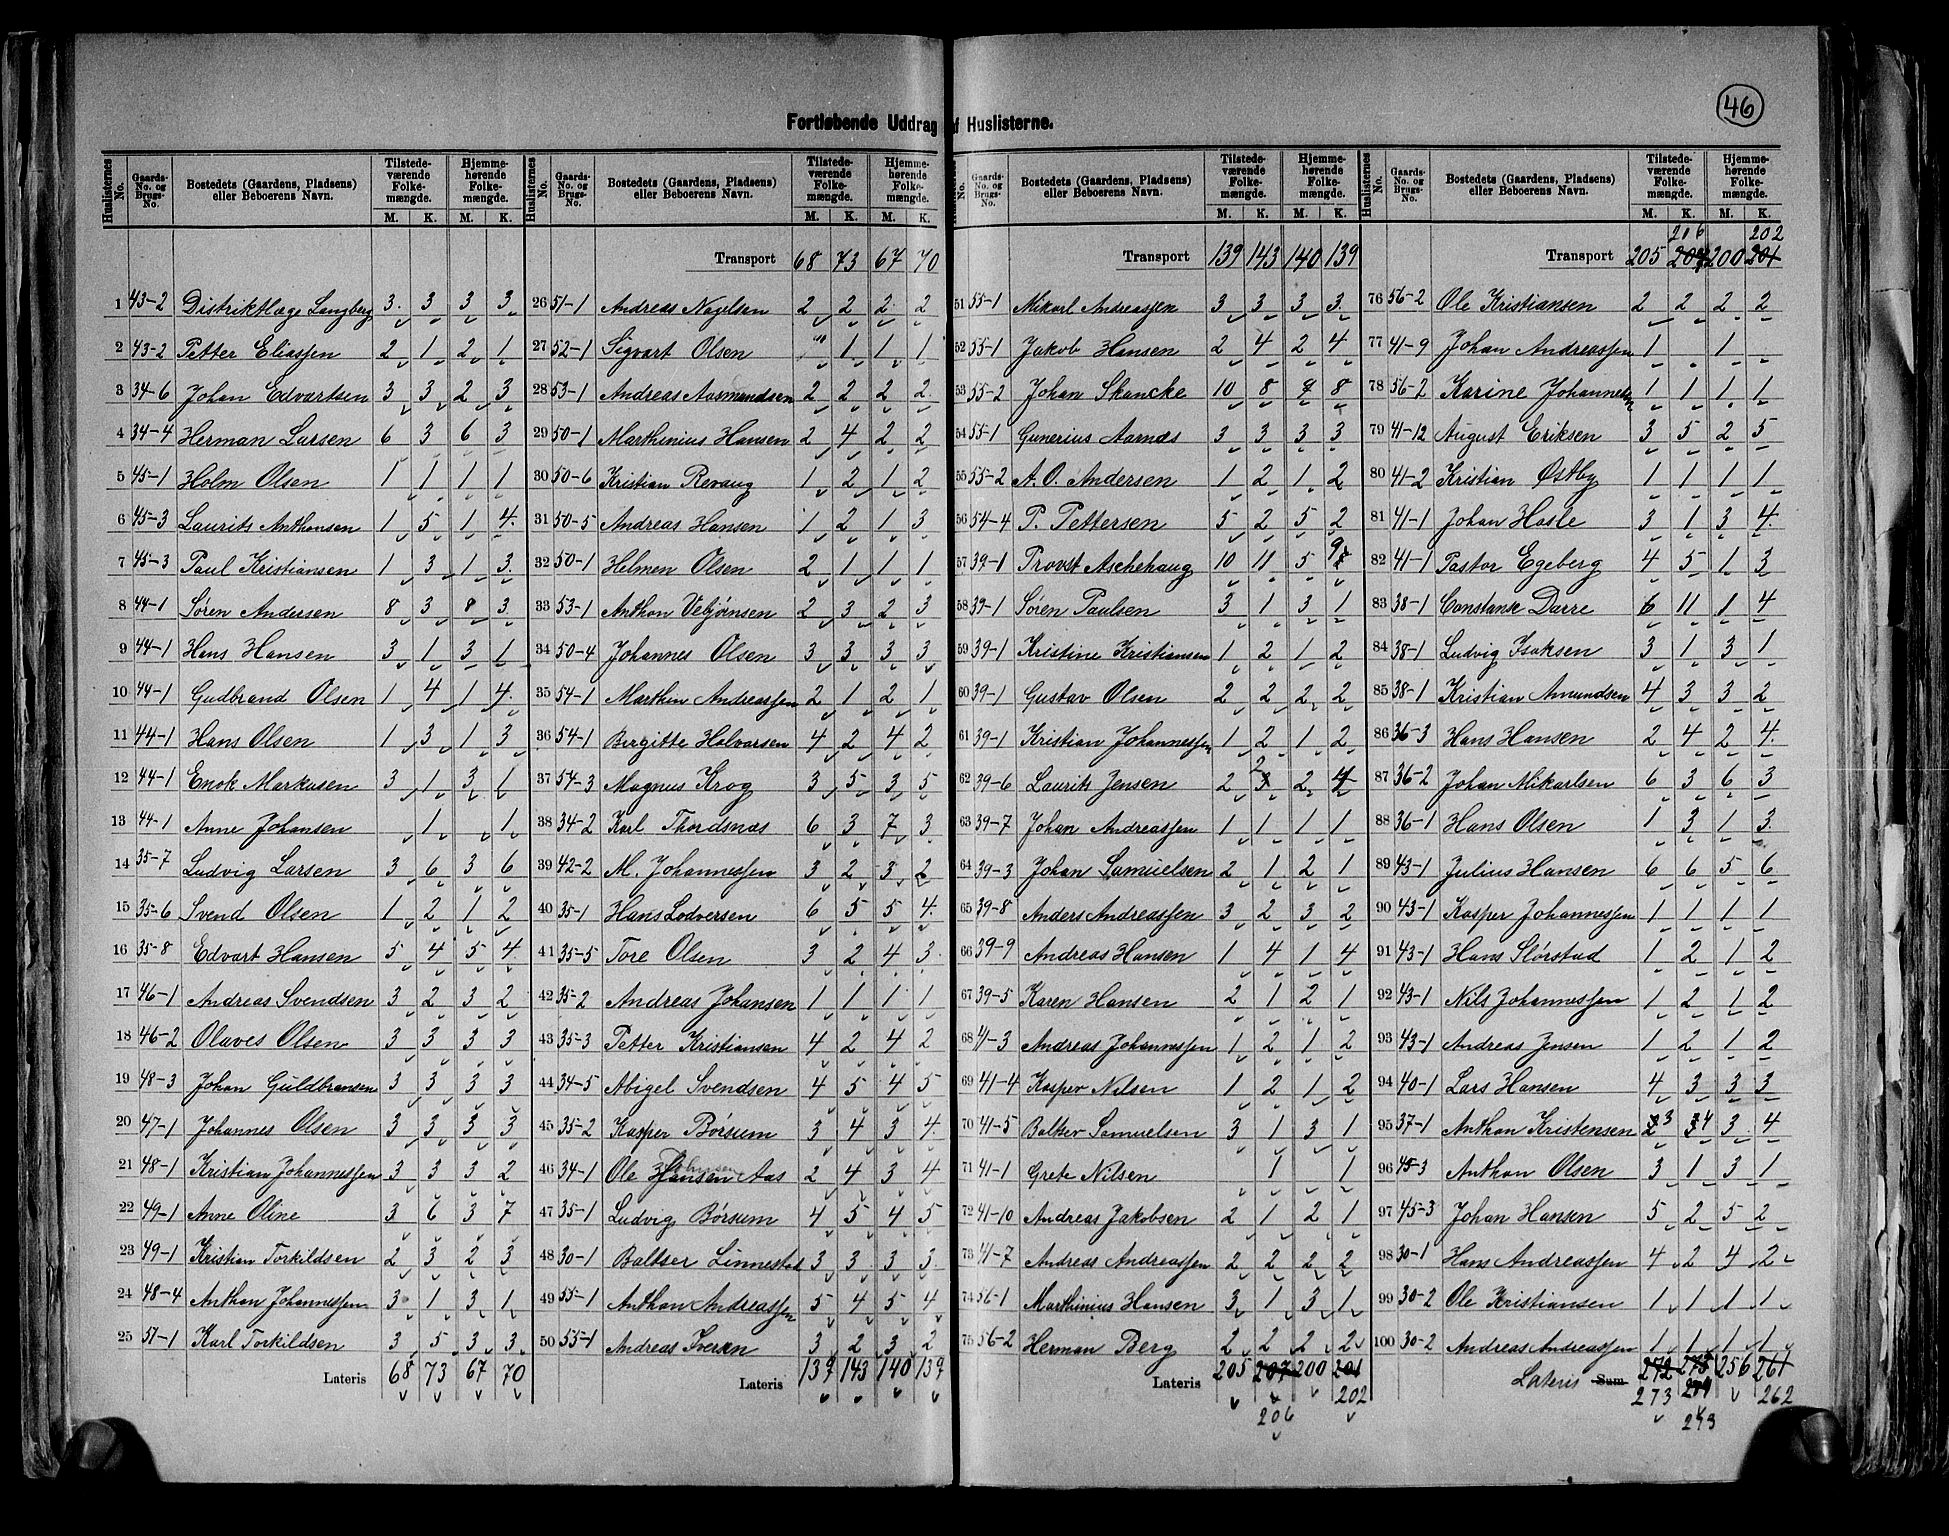 46
Fortløbende Uddrag af Huslisterne.
Huslisternes No. | Gaards-No. og Brugs-No. | Bostedets (Gaardens, Pladsens) eller Beboerens Navn. | Tilstedeværende Folkemængde. M. K. | Hjemmehørende Folkemængde. M. K.
1 43-2 Distriktlæge Langberg 3 3 3 3
2 43-2 Petter Eliassen 2 1 2 1
3 34-6 Johan Edvartsen 3 3 2 3
4 34-4 Herman Larsen 6 3 6 3
5 45-1 Holm Olsen 1 1 1 1
6 45-3 Laurits Anthonsen 1 5 1 4
7 45-3 Paul Kristiansen 1 3 1 3
8 44-1 Søren Andersen 8 3 8 3
9 44-1 Hans Hansen 3 1 3 1
10 44-1 Gudbrand Olsen 1 4 1 4
11 44-1 Hans Olsen 1 3 1 3
12 44-1 Enok Markusen 3 1 3 1
13 44-1 Anne Johansen 1 1
14 35-7 Ludvig Larsen 3 6 3 6
15 35-6 Svend Olsen 1 2 1 2
16 35-8 Edvart Hansen 5 4 5 4
17 46-1 Andreas Svendsen 3 2 3 2
18 46-2 Olaves Olsen 3 3 3 3
19 48-3 Johan Guldbransen 3 3 3 3
20 47-1 Johannes Olsen 3 3 3 3
21 48-1 Kristian Johannessen 3 3 3 2
22 49-1 Anne Oline 3 6 3 7
23 49-1 Kristian Torkildsen 2 3 2 3
24 48-4 Anthon Johannessen 3 1 3 1
25 51-1 Karl Torkildsen 3 5 3 3
Lateris 68 73 67 70
Huslisternes No. | Gaards-No. og Brugs-No. | Bostedets (Gaardens, Pladsens) eller Beboerens Navn. | Tilstedeværende Folkemængde. M. K. | Hjemmehørende Folkemængde. M. K.
Transport 68 73 67 70
26 51-1 Andreas Nagelsen 2 2 2 2
27 52-1 Sigvart Olsen " 1 1 1
28 53-1 Andreas Aasmundsen 2 2 2 2
29 50-1 Marthinius Hansen 2 4 2 2
30 50-6 Kristian Revaug 1 2 1 2
31 50-5 Andreas Hansen 1 2 1 3
32 50-1 Helmen Olsen 2 1 1 1
33 53-1 Anthon Vebjørnsen 2 3 2 3
34 50-4 Johannes Olsen 3 3 3 3
35 54-1 Marthin Andreassen 2 1 2 1
36 54-1 Bergitte Halvorsen 4 2 4 2
37 54-3 Magnus Krog 3 5 3 5
38 34-2 Karl Thordsnæs 6 3 7 3
39 42-2 M. Johannessen 3 2 3 2
40 35-1 Hans Lodversen 6 5 5 4
41 35-5 Tore Olsen 3 2 4 3
42 35-2 Andreas Johansen 1 1 1 1
43 35-3 Petter Kristiansen 4 2 4 2
44 34-5 Abigel Svendsen 4 5 4 5
45 35-2 Kasper Børsum 3 4 3 4
46 34-1 Ole Hansen Aas 2 4 3 4
47 35-1 Ludvig Børsum 4 5 4 5
48 30-1 Baltser Linnestad 3 3 3 3
49 55-1 Anthon Andreassen 5 4 5 4
50 55-1 Andreas Iversen 3 2 3 2
Lateris 139 143 140 139
Huslisternes No. | Gaards-No. og Brugs-No. | Bostedets (Gaardens, Pladsens) eller Beboerens Navn. | Tilstedeværende Folkemængde. M. K. | Hjemmehørende Folkemængde. M. K.
Transport 139 143 140 139
51 55-1 Mikarl Andreassen 3 3 3 3
52 55-1 Jakob Hansen 2 4 2 4
53 55-2 Johan Skancke 10 8 9 8
54 55-1 Gunerius Aarnæs 3 3 3 3
55 55-2 A. O. Andersen 1 2 1 2
56 54-4 P. Pettersen 5 2 5 2
57 39-1 Provst Aschehaug 10 11 5 9
58 39-1 Søren Paulsen 3 1 3 1
59 39-1 Kristine Kristiansen 1 2 1 2
60 39-1 Gustav Olsen 2 2 2 2
61 39-1 Kristian Johannessen 1 2 1 2
62 39-6 Laurits Jensen 2 2 2 4
63 39-7 Johan Andreassen 1 1 1 1
64 39-3 Johan Samuelsen 2 1 2 1
65 39-8 Anders Andreassen 3 2 3 2
66 39-9 Andreas Hansen 1 4 1 4
67 39-5 Karen Hansen 2 1 2 1
68 41-3 Andreas Johannessen 1 2 1 2
69 41-4 Kasper Nilsen 1 2 1 2
70 41-5 Baltser Samuelsen 3 1 3 1
71 41-1 Grete Nilsen 1 1
72 41-10 Andreas Jakobsen 2 1 2 1
73 41-7 Andreas Andreassen 2 2 2 2
74 56-1 Marthinius Hansen 3 1 3 1
75 56-2 Herman Berg 2 2 2 2
Lateris 205 207 200 201
206 202
Huslisternes No. | Gaards-No. og Brugs-No. | Bostedets (Gaardens, Pladsens) eller Beboerens Navn. | Tilstedeværende Folkemængde. M. K. | Hjemmehørende Folkemængde. M. K.
206 202
Transport 205 207 200 201
76 56-2 Ole Kristiansen 2 2 2 2
77 41-9 Johan Andreassen 1 1
78 56-2 Karine Johannesen 1 1 1 1
79 41-12 August Eriksen 3 5 2 5
80 41-2 Kristian Østby 1 1 1 1
81 41-1 Johan Hasle 3 1 3 4
82 41-1 Pastor Egeberg 4 5 1 3
83 38-1 Constanse Darre 6 11 1 4
84 38-1 Ludvig Isaksen 3 1 3 1
85 38-1 Kristian Amundsen 4 3 3 2
86 36-3 Hans Hansen 2 4 2 4
87 36-2 Johan Mikarlsen 6 3 6 3
88 36-1 Hans Olsen 1 3 1 3
89 43-1 Julius Hansen 6 6 5 6
90 43-1 Kasper Johannessen 1 1 1 1
91 43-1 Hans Slørstad 1 2 1 2
92 43-1 Nils Johannessen 1 2 1 2
93 43-1 Andreas Jensen 1 2 1 2
94 40-1 Lars Hansen 4 3 3 3
95 37-1 Anthon Kristensen 2 3 3 4 3 4
96 45-3 Anthon Olsen 3 1 3 1
97 45-3 Johan Hansen 5 2 5 2
98 30-1 Hans Andreassen 4 2 4 2
99 30-2 Ole Kristiansen 1 1 1 1
100 30-2 Andreas Andreassen 1 1 1 1
Lateris Sum 272 275 256 261
273 262
273